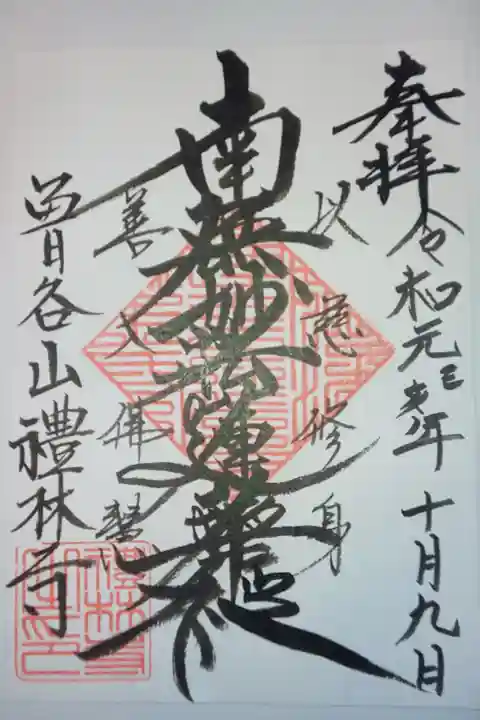 奉拝 令和元己亥年 十月九日
以慈修身
南無妙法蓮華経
善入佛慧
曽谷山禮林寺